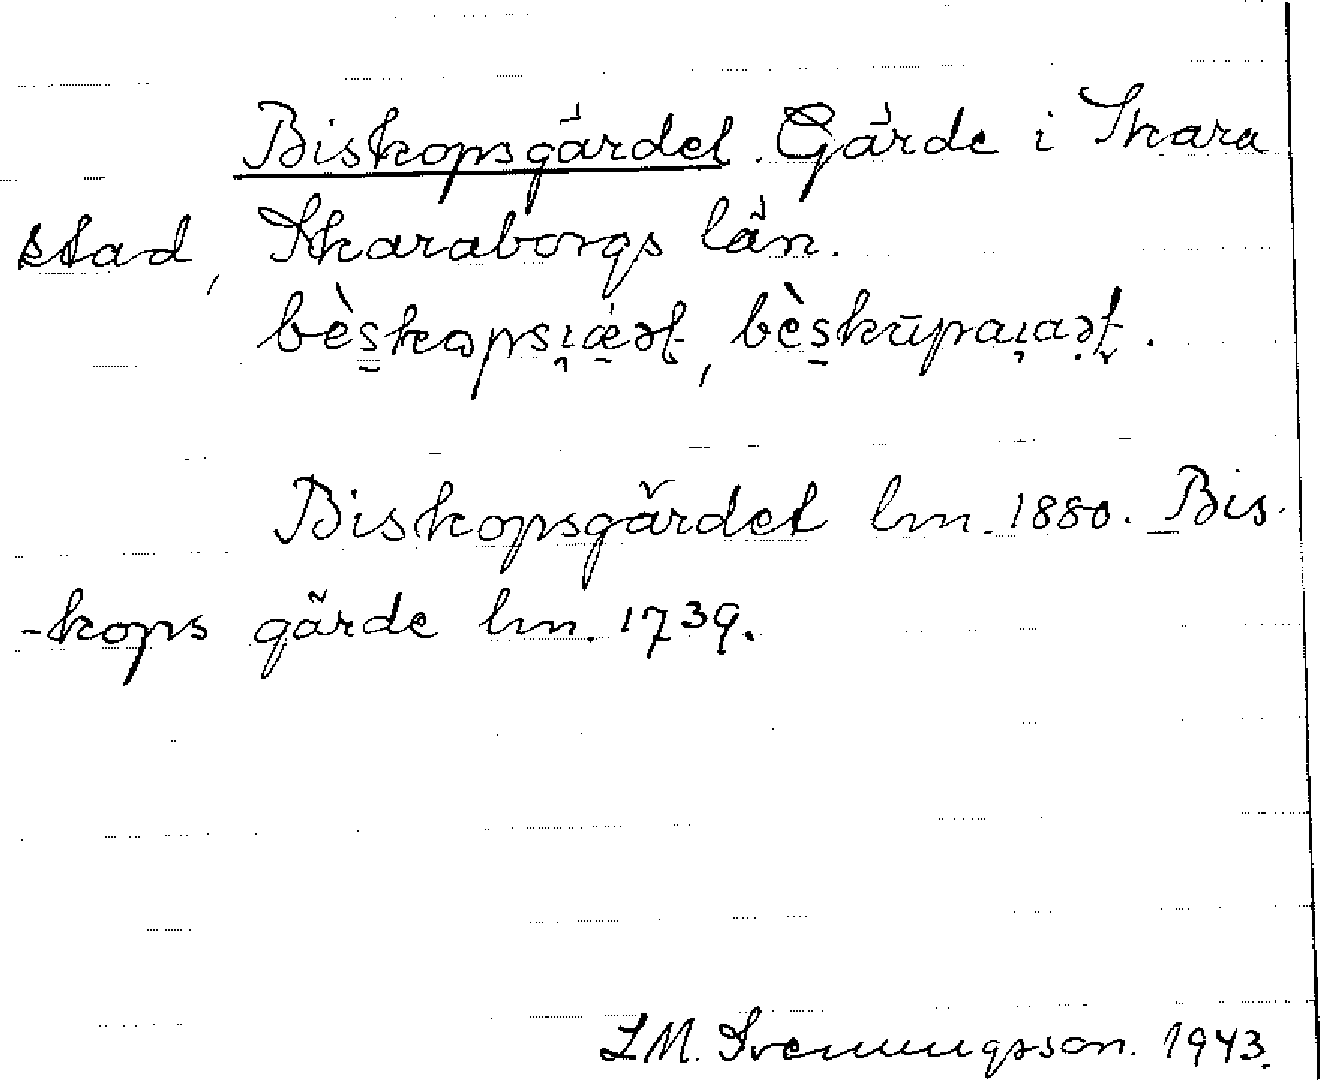 Biskopsgärdet. Gärde i Skara
stad, Skaraborgs län.
Biskopsgärdet lm. 1880. Bis-
-kops gärde lm. 1739.
L M. Svenungsson. 1943.